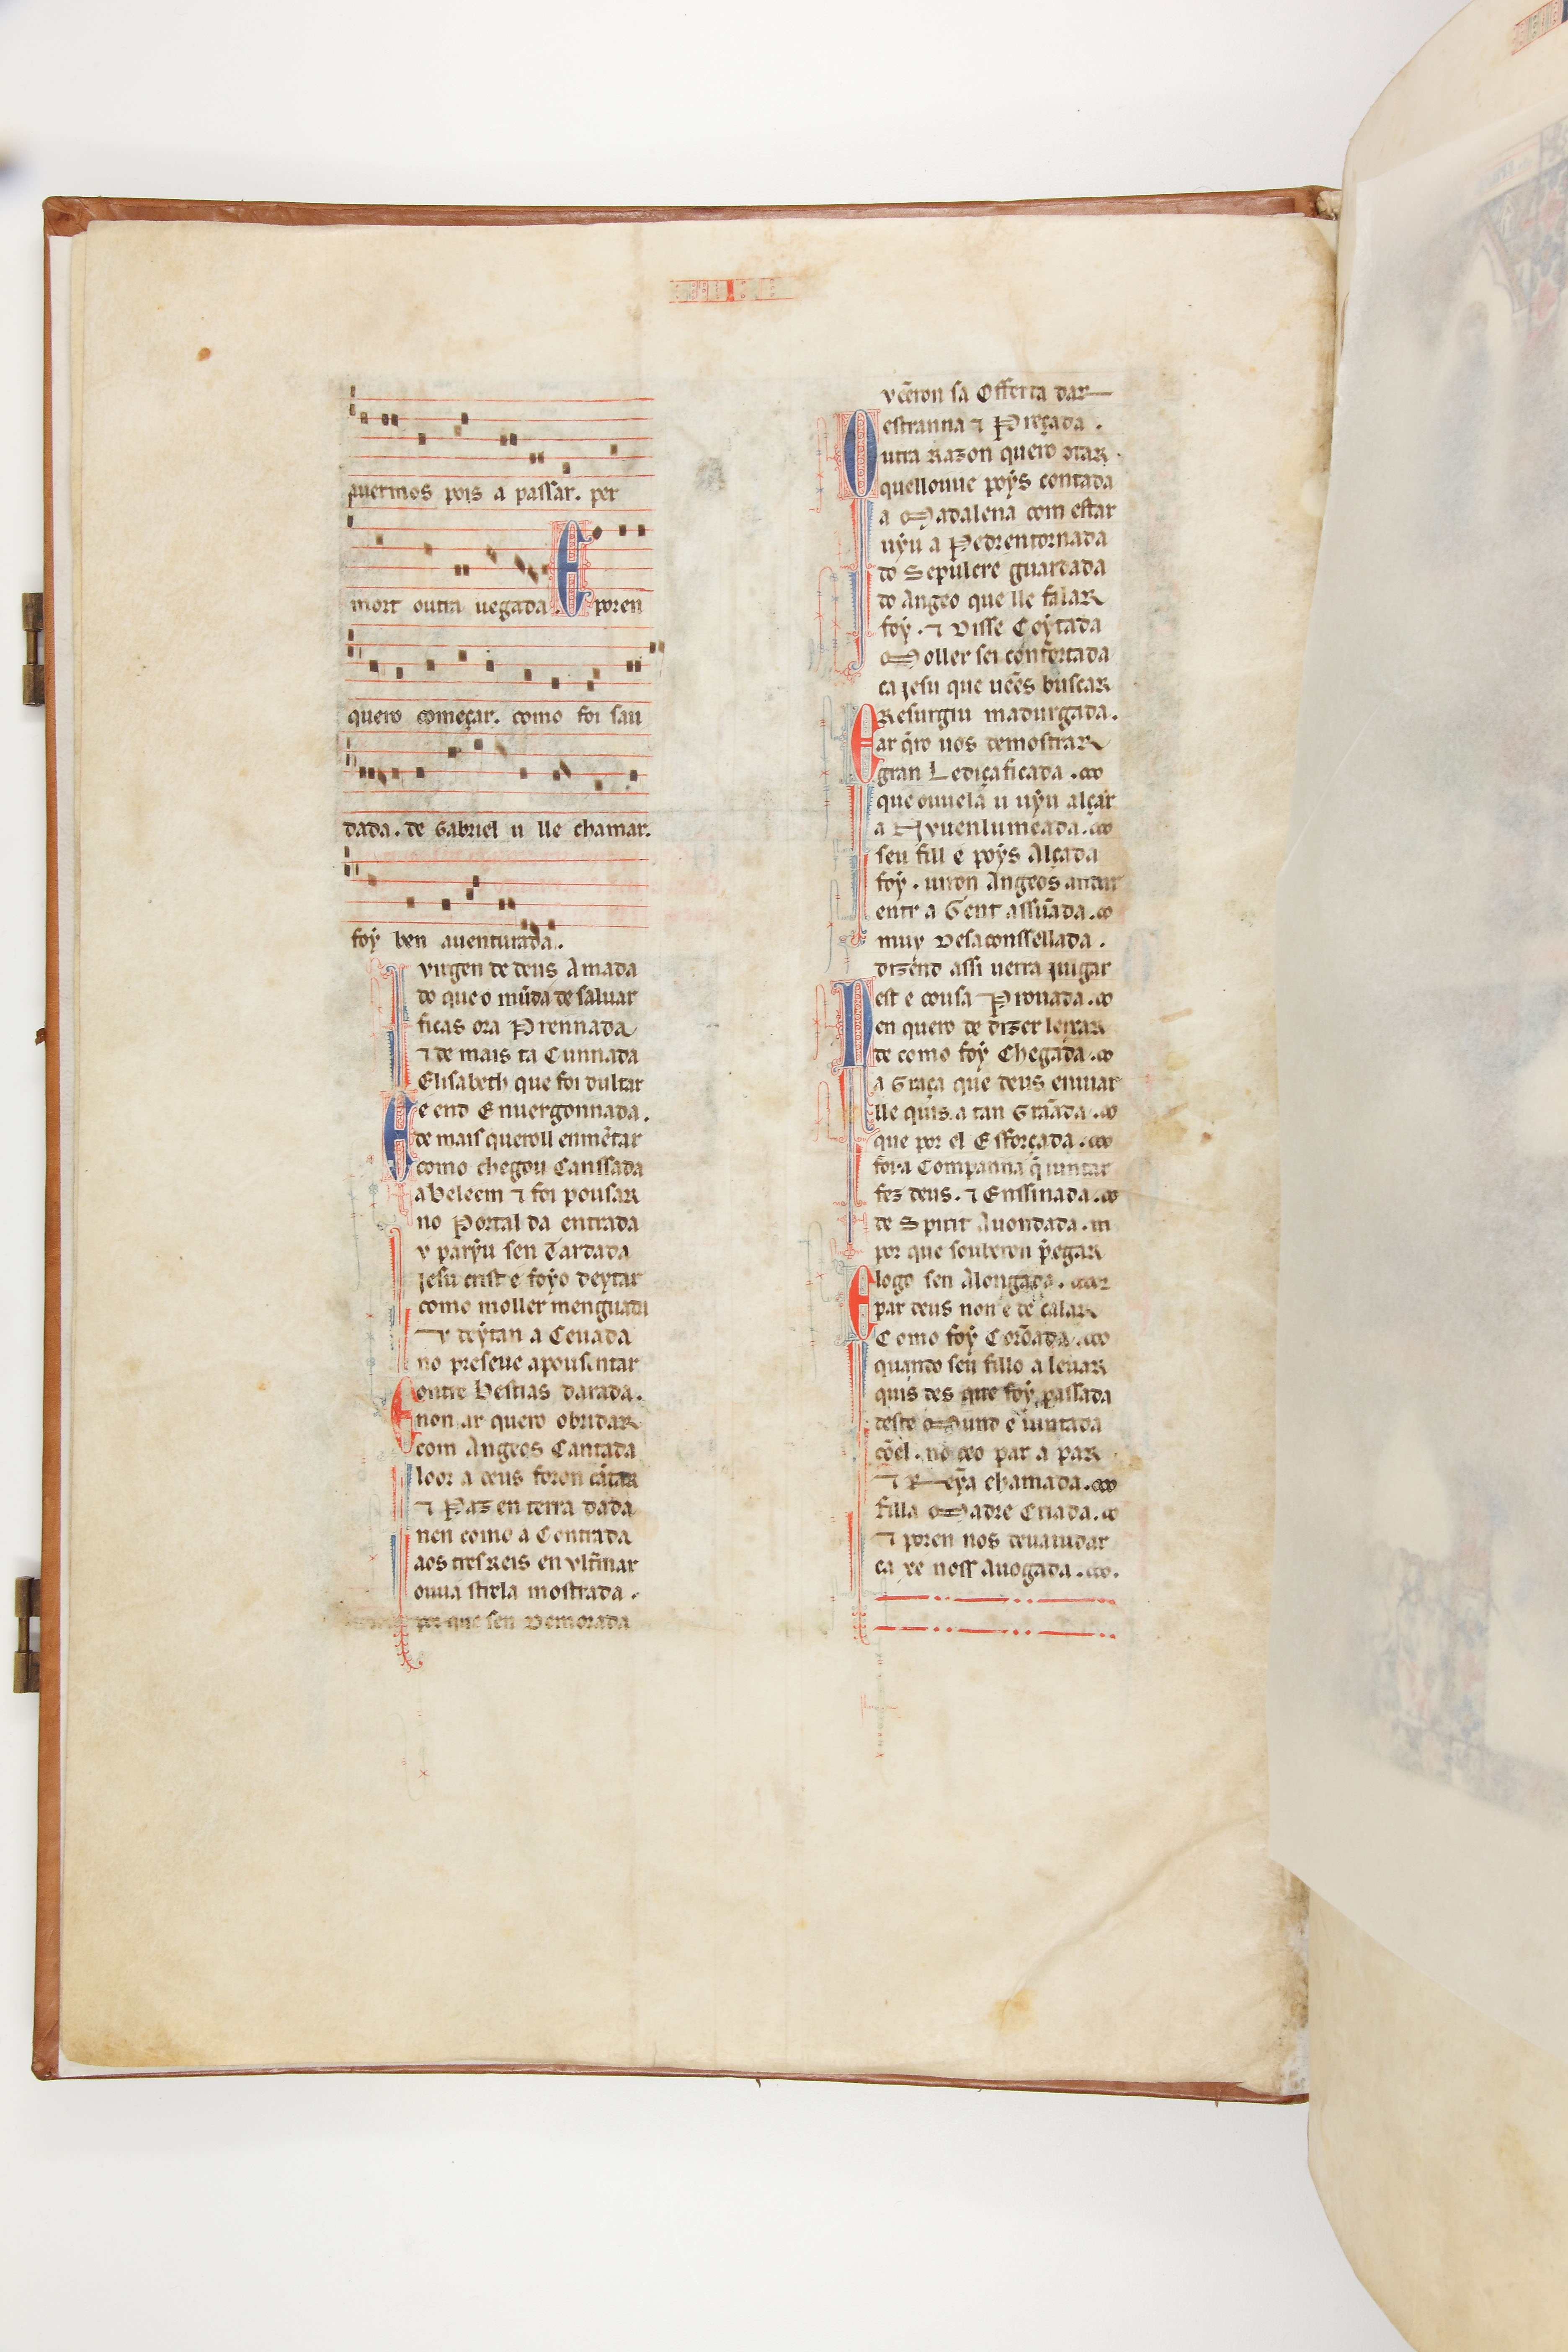 auermos pois a passar. per
mort outra uegada. E poren
quero começar. como foi sau
dada. de Gabriel u lle chamar.
foy ben auenturada.
virgen de deus Amada
do que o mũda de saluar
ficas ora Prennada
⁊ de mais ta Cunnada
Elisabeth que foi dultar
e end Enuergonnada.
E de mais queroll enmẽtar
como chegou Canssada
a beleem ⁊ foi pousar
no Portal da entrada
v paryu sen Tardada
jesu crist e foyo deytar
como moller menguada
v deytan a Ceuada
no preseue apousentar
ontre bestias darada.
E non ar quero obridar
com Angeos Cantada
loor a deus foron cãtar
⁊ Paz en terra dada
nen como a Contrada
aos tres Reis en vltramar
ouua strela mostrada.
por que sen Demorada
vẽeron sa Offerta dar
estranna ⁊ Preçada.
Outra Razon quero
quellouue poys contada
a Madalena com estar
uyu a Pedrentornada
do Sepulcre guardada
do Angeo que lle falar
foy. ⁊ Disse Coytada
Moller sei confortada
ca jesu que uẽes buscar
Resurgiu madurgada.
E ar q̃ro uos demostrar
gran Lediça ficada.
que ouuela u uyu alçar
a Nuuenlumeada.
seu fill e poys Alçada
foy. uiron Angeos andar
entr a Gent assũada.
muy Desaconssellada.
dizend assi uerra juigar
est e cousa Prouada.
Nen quero de dizer leixar
de como foy Chegada.
a Graça que deus enuiar
lle quis. a tan Grãada.
que por el Esforçada.
fora Companna q̃ iuntar
fez deus. ⁊ Enssinada.
de Spirit Auondada.
por que souberon p̃egar
logo sen Alongada.
E par deus non e de calar
Como foy Corõada.
quando seu fillo a leuar
quis des que foy passada
deste Mund e iuntada
cõel. no ceo par a par
⁊ Reya chamada.
filla Madre Criada.
⁊ poren nos deuaiudar
ca xe noss Auogada.